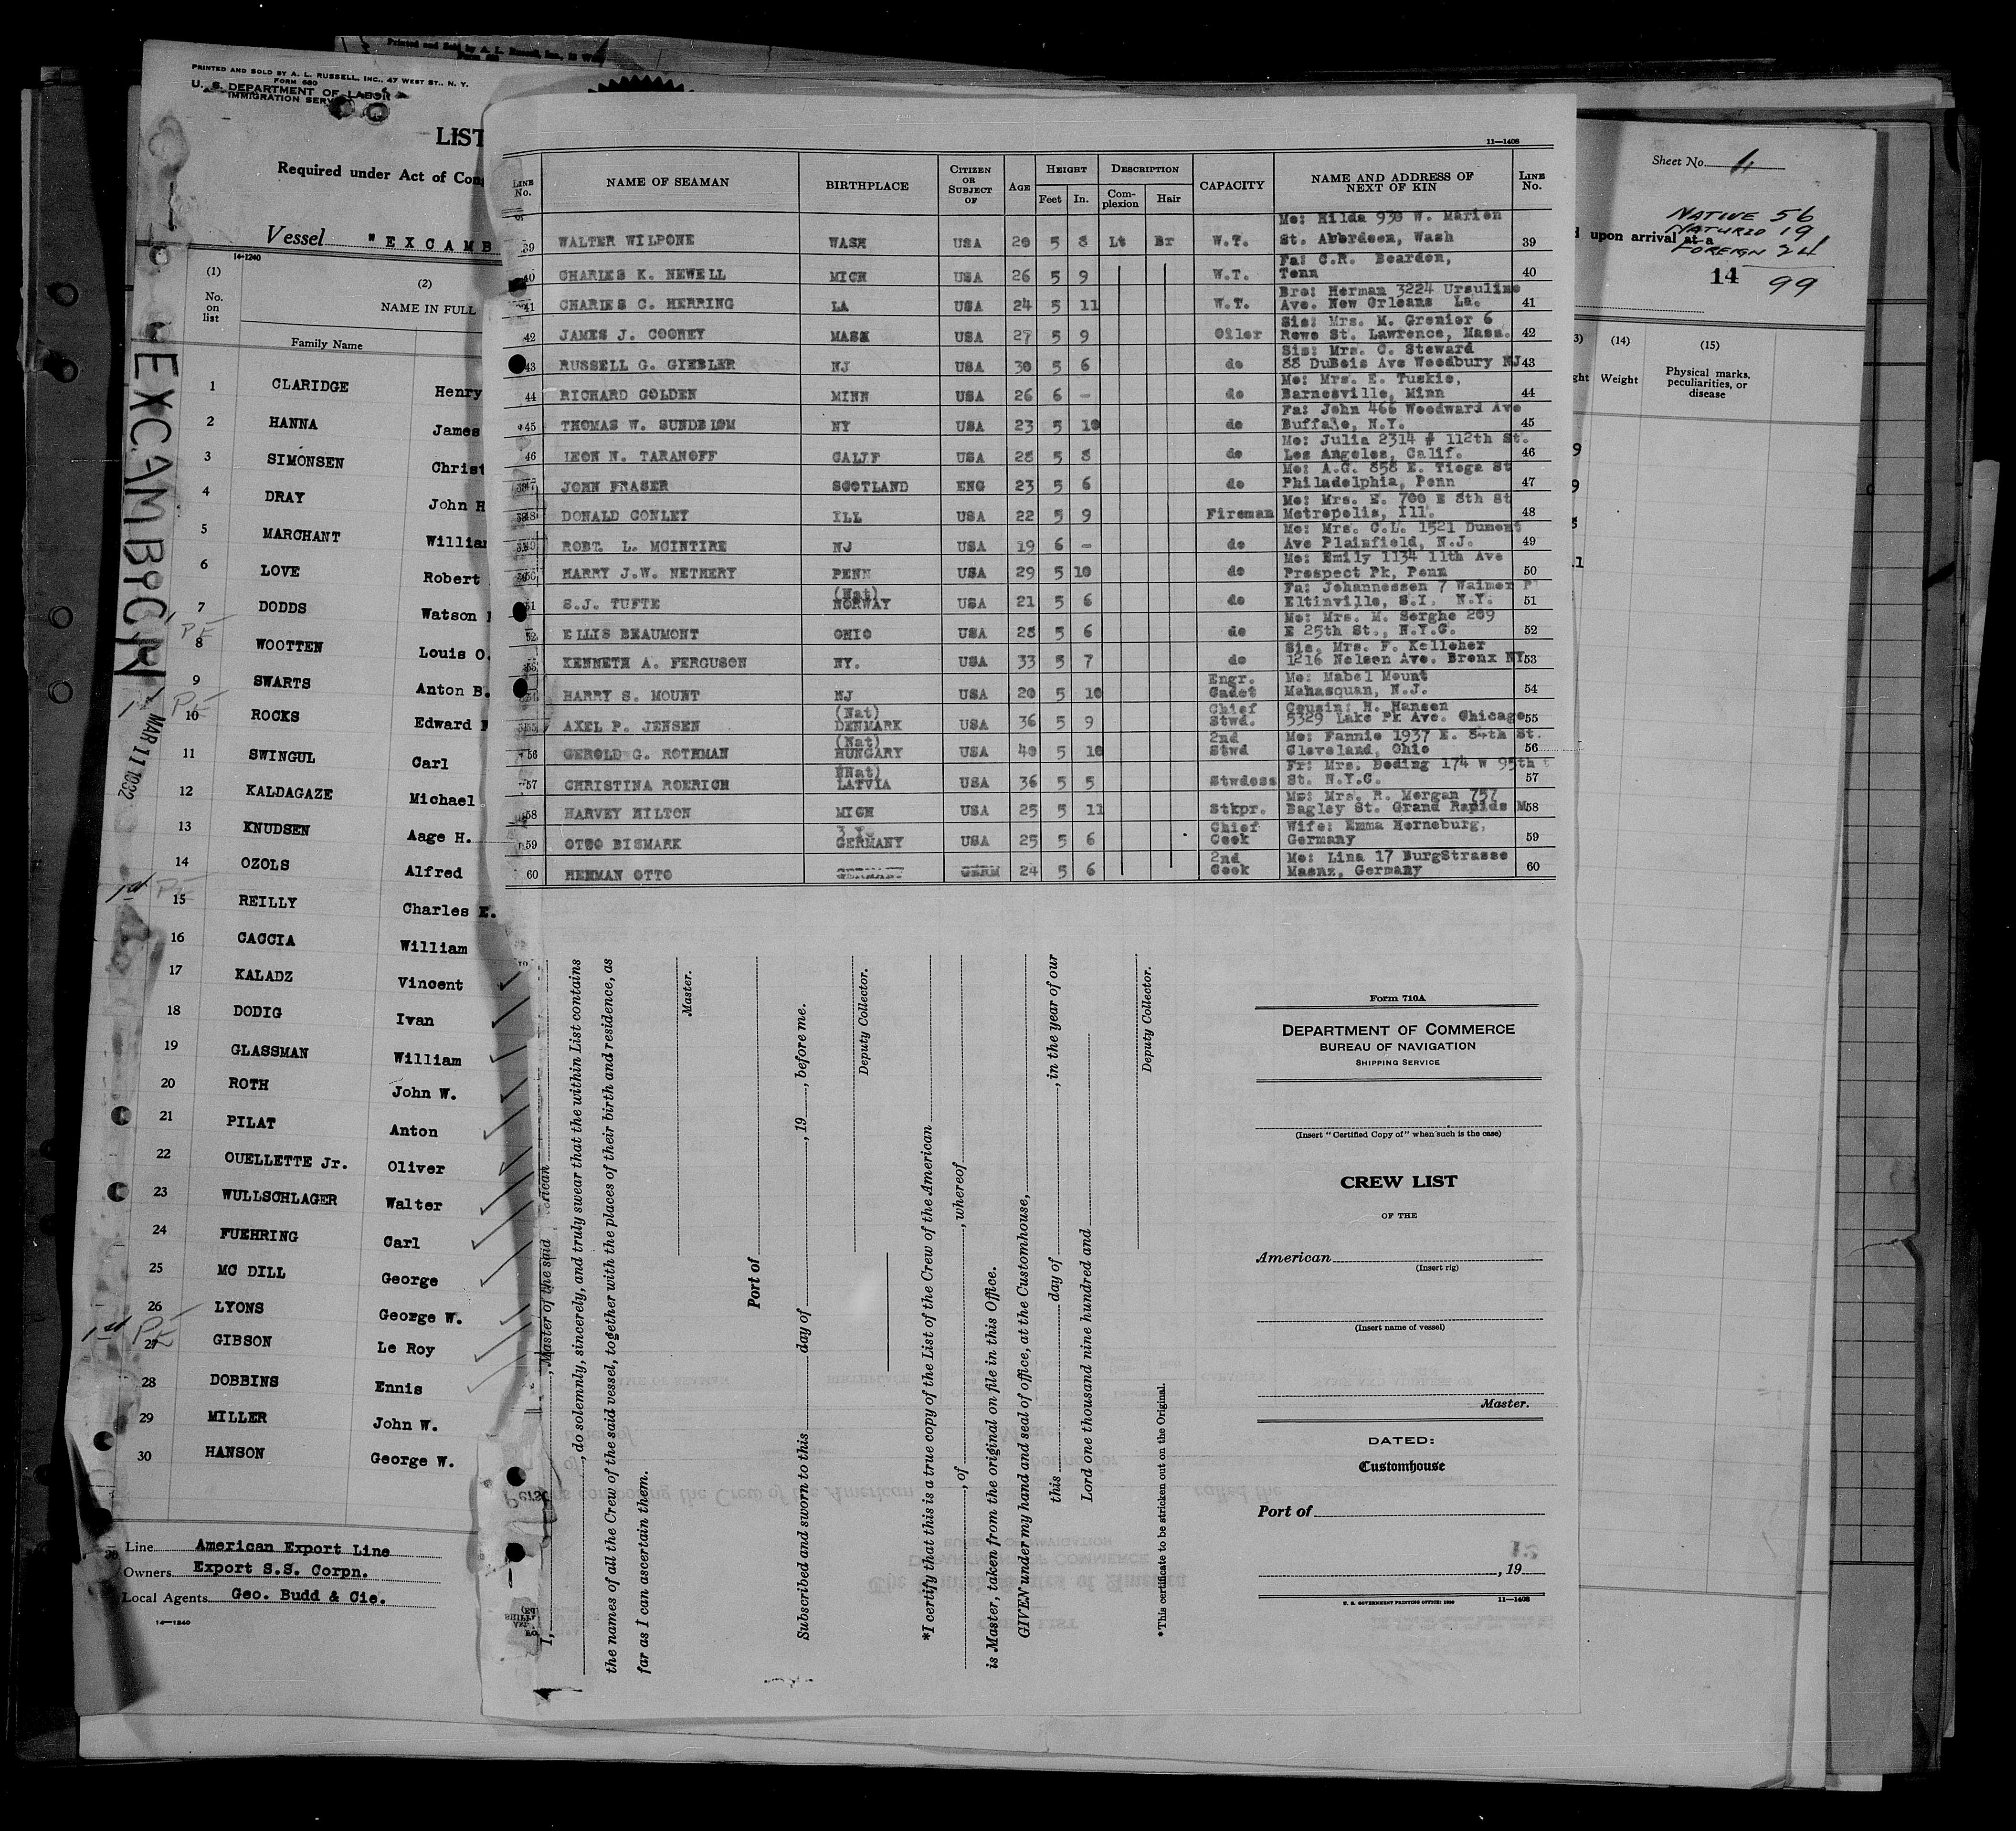 PRINTED AND SOLD BY A. L. RUSSELL, INC., 47 WEST ST., N. Y.
FORM 680
U. S. DEPARTMENT OF LABOR
IMMIGRATION SERV
LIST
Required under Act of Con
Vessel "EXCAMB
14-1240
(1) (2)
No. on list NAME IN FULL
Family Name
1 CLARIDGE Henry
2 HANNA James
3 SIMONSEN Christ
4 DRAY John H
5 MARCHANT William
6 LOVE Robert
7 DODDS Watson
8 WOOTTEN Louis O.
9 SWARTS Anton B.
10 ROCKS Edward
11 SWINGUL Carl
12 KALDAGAZE Michael
13 KNUDSEN Aage H.
14 OZOLS Alfred
15 REILLY Charles E.
16 CACCIA William
17 KALADZ Vincent
18 DODIG Ivan
19 GLASSMAN William
20 ROTH John W.
21 PILAT Anton
22 OUELLETTE Jr. Oliver
23 WULLSCHLAGER Walter
24 FUEHRING Carl
25 MC DILL George
26 LYONS George W.
27 GIBSON Le Roy
28 DOBBINS Ennis
29 MILLER John W.
30 HANSON George W.
Line American Export Line
Owners Export S.S. Corpn.
Local Agents Geo. Budd & Cie.
14-1240
EXCAMBION
MAR 11 1932
11-1408
LINE No. NAME OF SEAMAN BIRTHPLACE CITIZEN OR SUBJECT OF AGE HEIGHT DESCRIPTION CAPACITY NAME AND ADDRESS OF NEXT OF KIN LINE No.
Feet In. Com-plexion Hair
Mo: Hilda 930 W. Marion
39 WALTER WILPONE WASH USA 20 5 8 Lt Br W.T. St. Abberdeen, Wash 39
Fa: C.R. Bearden,
40 CHARLES K. NEWELL MICH USA 26 5 9 W.T. Tenn 40
Bro: Herman 3224 Ursuline
41 CHARLES C. HERRING LA USA 24 5 11 W.T. Ave. New Orleans La. 41
Sis: Mrs. M. Grenier 6
42 JAMES J. COONEY MASS USA 27 5 9 Oiler Rowe St. Lawrence, Mass. 42
Sis: Mrs. C. Steward
43 RUSSELL G. GIEBLER NJ USA 30 5 6 do 88 DuBois Ave Woodbury NJ 43
Mo: Mrs. E. Tuskie,
44 RICHARD GOLDEN MINN USA 26 6 - do Barnesville, Minn 44
Fa: John 466 Woodward Ave
45 THOMAS W. SUNDBLOM NY USA 23 5 10 do Buffalo, N.Y. 45
Mo: Julia 2314 # 112th St.
46 LEON N. TARANOFF CALIF USA 28 5 8 do Los Angeles, Calif. 46
Mo: A.G. 858 E. Tioga St
47 JOHN FRASER SCOTLAND ENG 23 5 6 do Philadelphia, Penn 47
Mo: Mrs. E. 700 E 8th St
48 DONALD CONLEY ILL USA 22 5 9 Fireman Metropolis, Ill. 48
Mo: Mrs. C.L. 1521 Dumont
49 ROBT. L. MCINTIRE NJ USA 19 6 - do Ave Plainfield, N.J. 49
Mo: Emily 1134 11th Ave
50 HARRY J.W. NETHERY PENN USA 29 5 10 do Prospect Pk, Penn 50
(Nat) Fa: Johannessen 7 Waimer Pl
51 S.J. TUFTE NORWAY USA 21 5 6 do Eltinville, S.I. N.Y. 51
Mo: Mrs. M. Serghe 209
52 ELLIS BEAUMONT OHIO USA 28 5 6 do E 25th St., N.Y.C. 52
Sis, Mrs. F. Kelleher
53 KENNETH A. FERGUSON NY. USA 33 5 7 do 1216 Nelson Ave. Bronx NY 53
Engr. Mo: Mabel Mount
54 HARRY S. MOUNT NJ USA 20 5 10 Cadet Mahasquan, N.J. 54
(Nat) Chief Cousin: H. Hansen
55 AXEL P. JENSEN DENMARK USA 36 5 9 Stwd. 5329 Lake Pk Ave. Chicago 55
(Nat) 2nd Mo: Fannie 1937 E. 84th St.
56 GEROLD G. ROTHMAN HUNGARY USA 40 5 10 Stwd Cleveland, Ohio 56
(Nat) Fr: Mrs. Boding 174 W 95th
57 CHRISTINA ROERICH LATVIA USA 36 5 5 Stwdess St. N.Y.C. 57
Mo: Mrs. R. Morgan 757
58 HARVEY HILTON MICH USA 25 5 11 Stkpr. Bagley St. Grand Rapids M 58
Chief Wife: Emma Horneburg,
59 OTTO BISMARK GERMANY USA 25 5 6 Cook Germany 59
2nd Mo: Lina 17 BurgStrasse
60 HERMAN OTTO GERMANY GERM 24 5 6 Cook Maenz, Germany 60
I, , Master of the said American
, do solemnly, sincerely, and truly swear that the within List contains
the names of all the Crew of the said vessel, together with the places of their birth and residence, as
far as I can ascertain them.
Master.
Port of
Subscribed and sworn to this day of , 19 , before me.
Deputy Collector.
*I certify that this is a true copy of the List of the Crew of the American
, of , whereof
is Master, taken from the original on file in this Office.
GIVEN under my hand and seal of office, at the Customhouse,
this day of , in the year of our
Lord one thousand nine hundred and
Deputy Collector.
*This certificate to be stricken out on the Original.
Form 710A
DEPARTMENT OF COMMERCE
BUREAU OF NAVIGATION
SHIPPING SERVICE
(Insert "Certified Copy of" when such is the case)
CREW LIST
OF THE
American
(Insert rig)
(Insert name of vessel)
Master.
DATED:
Customhouse
Port of
, 19
U. S. GOVERNMENT PRINTING OFFICE: 11-1408
Sheet No. 1
NATIVE 56
NATURZD 19
FOREIGN 24
99
upon arrival at a
14
(14) (15)
Weight Physical marks, peculiarities, or disease